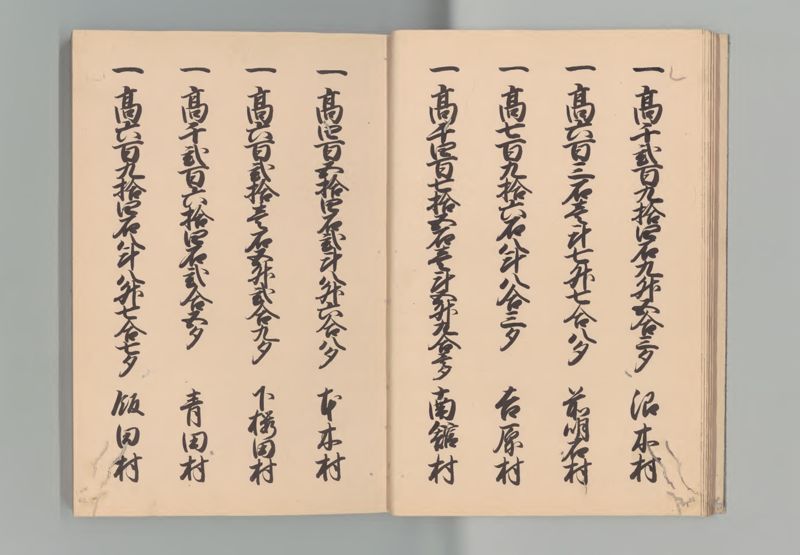 一 高千弐百九拾四石九升五合三夕 沼木村
一 高六百三石壱斗七升七合八夕 前明石村
一 高七百九拾六石八斗八合三夕 吉原村
一 高千四百七拾五石壱斗五升九合壱夕 南舘村
一 高四百五拾四石弐斗八升六合八夕 本木村
一 高六百弐拾壱石五升弐合九夕 下桜田村
一 高千弐百六拾四石弐合五夕 青田村
一 高六百九拾四石八斗八升七合七夕 飯田村